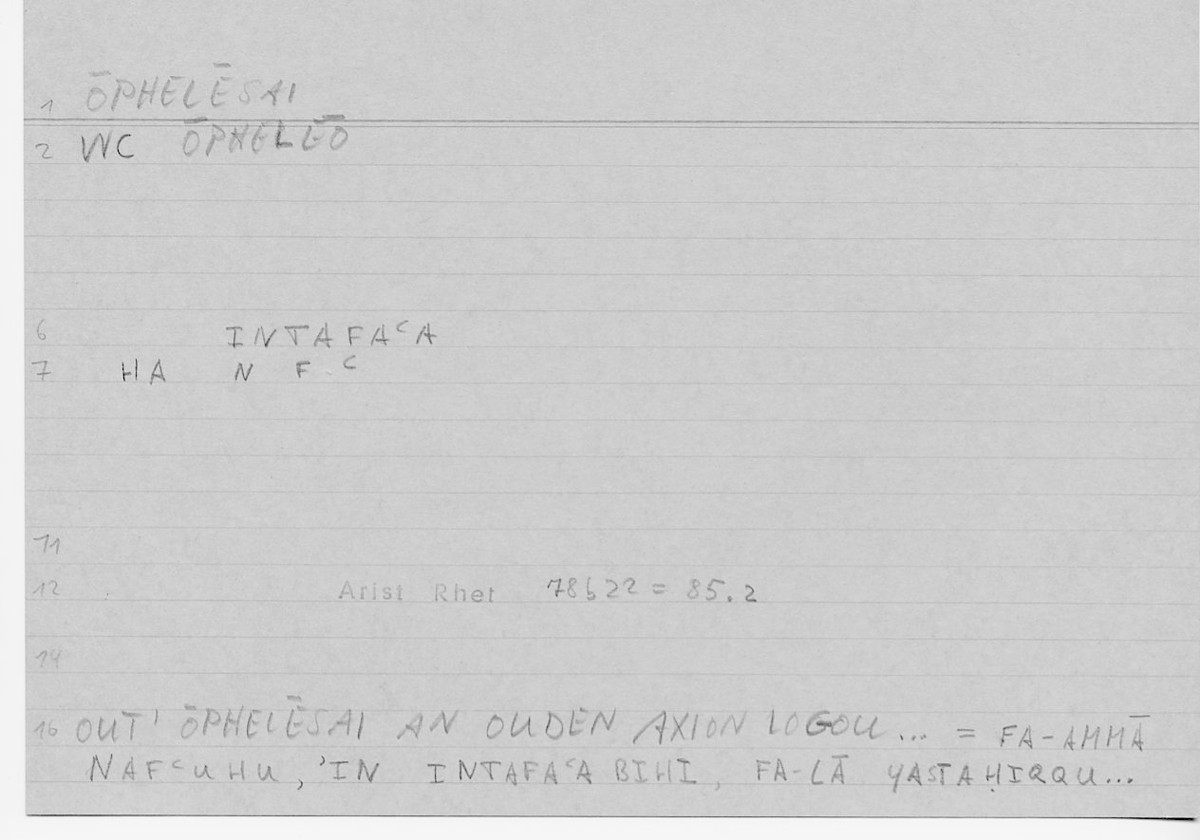 1 ŌPHELĒSAI
2 WC ŌPHELEŌ
6 INTAFAᶜA
7 HA N F ᶜ
11
12 Arist Rhet 78b22 = 85.2
14
16 OUT' ŌPHELĒSAI AN OUDEN AXION LOGOU... = FA-AMMĀ
NAFᶜUHU, 'IN INTAFAᶜA BIHI, FA-LĀ YASTAḤIQQU...